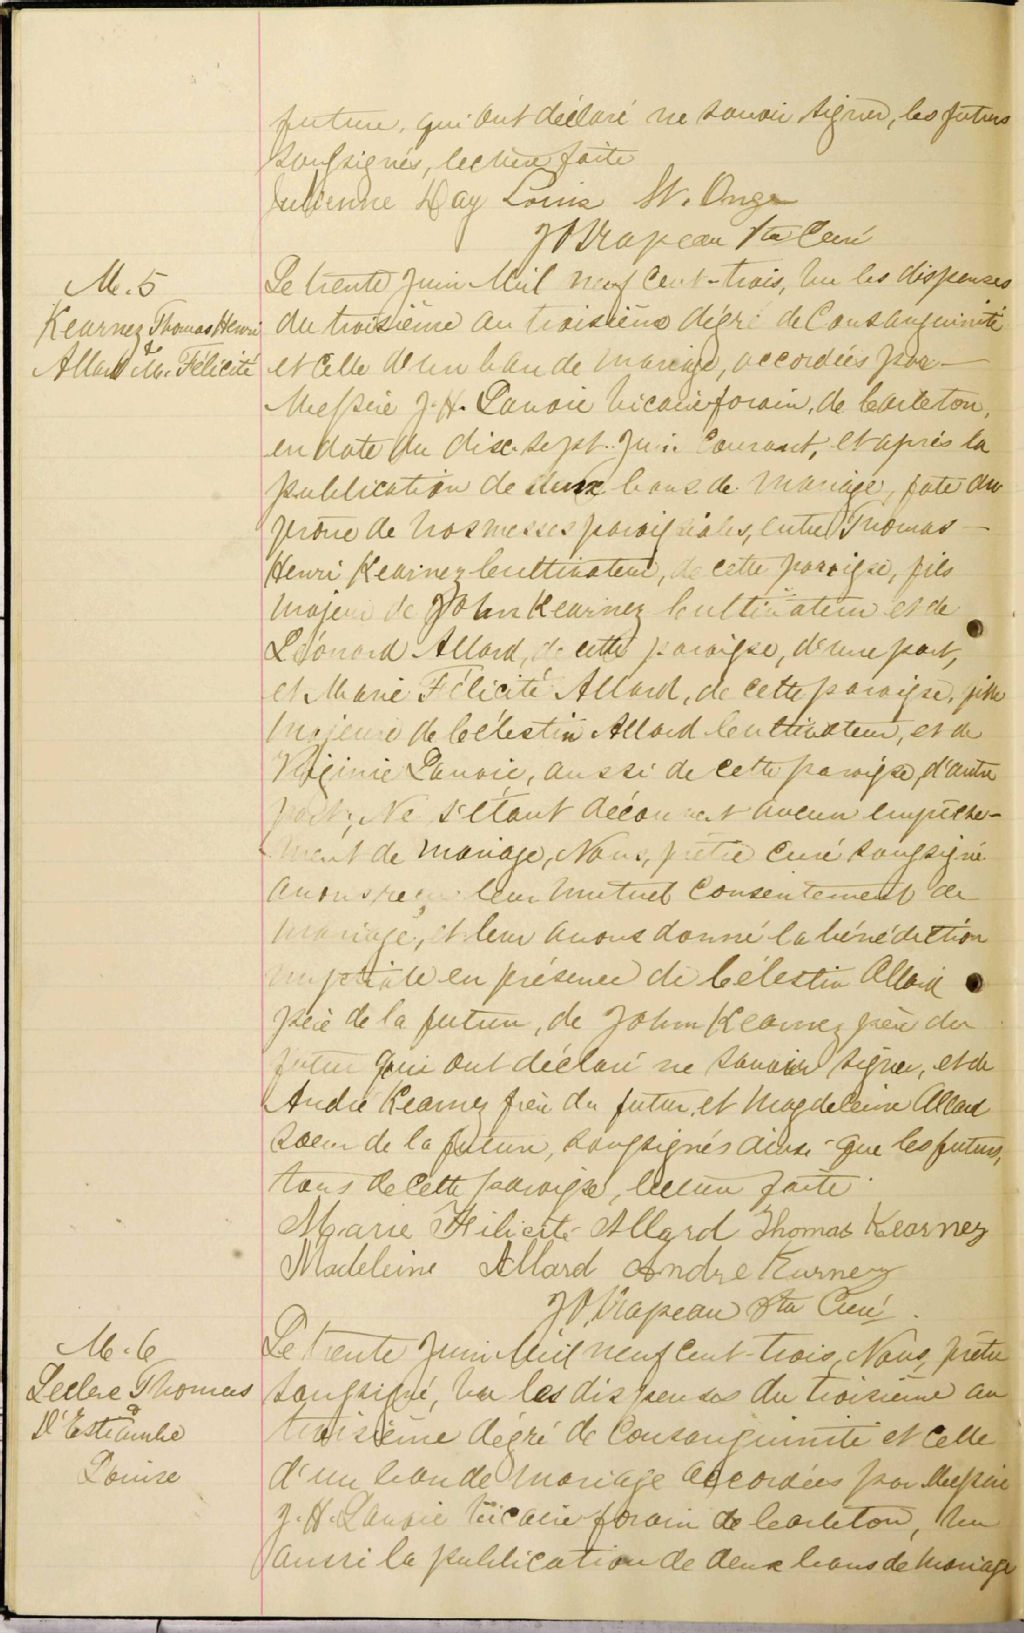 future, qui ont déclaré ne savoir signer, les futurs
soussignés, lecture faite
Julienne Day Louis St. Onge
Ptre Curé
M. 5
Kearney Thomas Henri
&
Allard M. Félicité
Le trente Juin Mil neuf cent-trois, Vu les dispenses
du troisième au troisième dégré de Consanguinité
et celle d'un ban de mariage, accordées par
Messire J. H. Lavoie Vicaire forain, de Carleton,
en date du dix-sept Juin Courant, et après la
publication de deux bans de mariage, faite au
prône de nos messes paroissiales, entre Thomas
Henri Kearney Cultivateur, de cette paroisse, fils
majeur de John Kearney Cultivateur et de
Léonard Allard, de cette paroisse, d'une part,
et Marie Félicité Allard, de cette paroisse, fille
majeure de Célestin Allard Cultivateur, et de
Virginie Lavoie, aussi de cette paroisse, d'autre
part; Ne s'étant découvert aucun empêche-
ment de mariage, Nous, prêtre curé soussigné
avons reçu leur mutuel Consentement de
mariage, et leur avons donné la bénédiction
nuptiale en présence de Célestin Allard
père de la future, de John Kearney père du
futur qui ont déclaré ne savoir signer, et de
André Kearney frère du futur, et Magdeleine Allard
soeur de la future, soussignés ainsi-que les futurs,
tous de cette paroisse, lecture faite.
Marie Félicité Allard Thomas Kearney
Madeleine Allard Andre Kurney
Ptre Curé
M. 6
Leclerc Thomas
&
D'Estiambe
Louise
Le trente Juin Mil neuf cent-trois, Nous, prêtre
soussigné, Vu les dispenses du troisième au
troisième dégré de Consanguinité et celle
d'un ban de mariage accordées par Messire
J. H. Lavoie Vicaire forain de Carleton, Vu
aussi la publication de deux bans de mariage